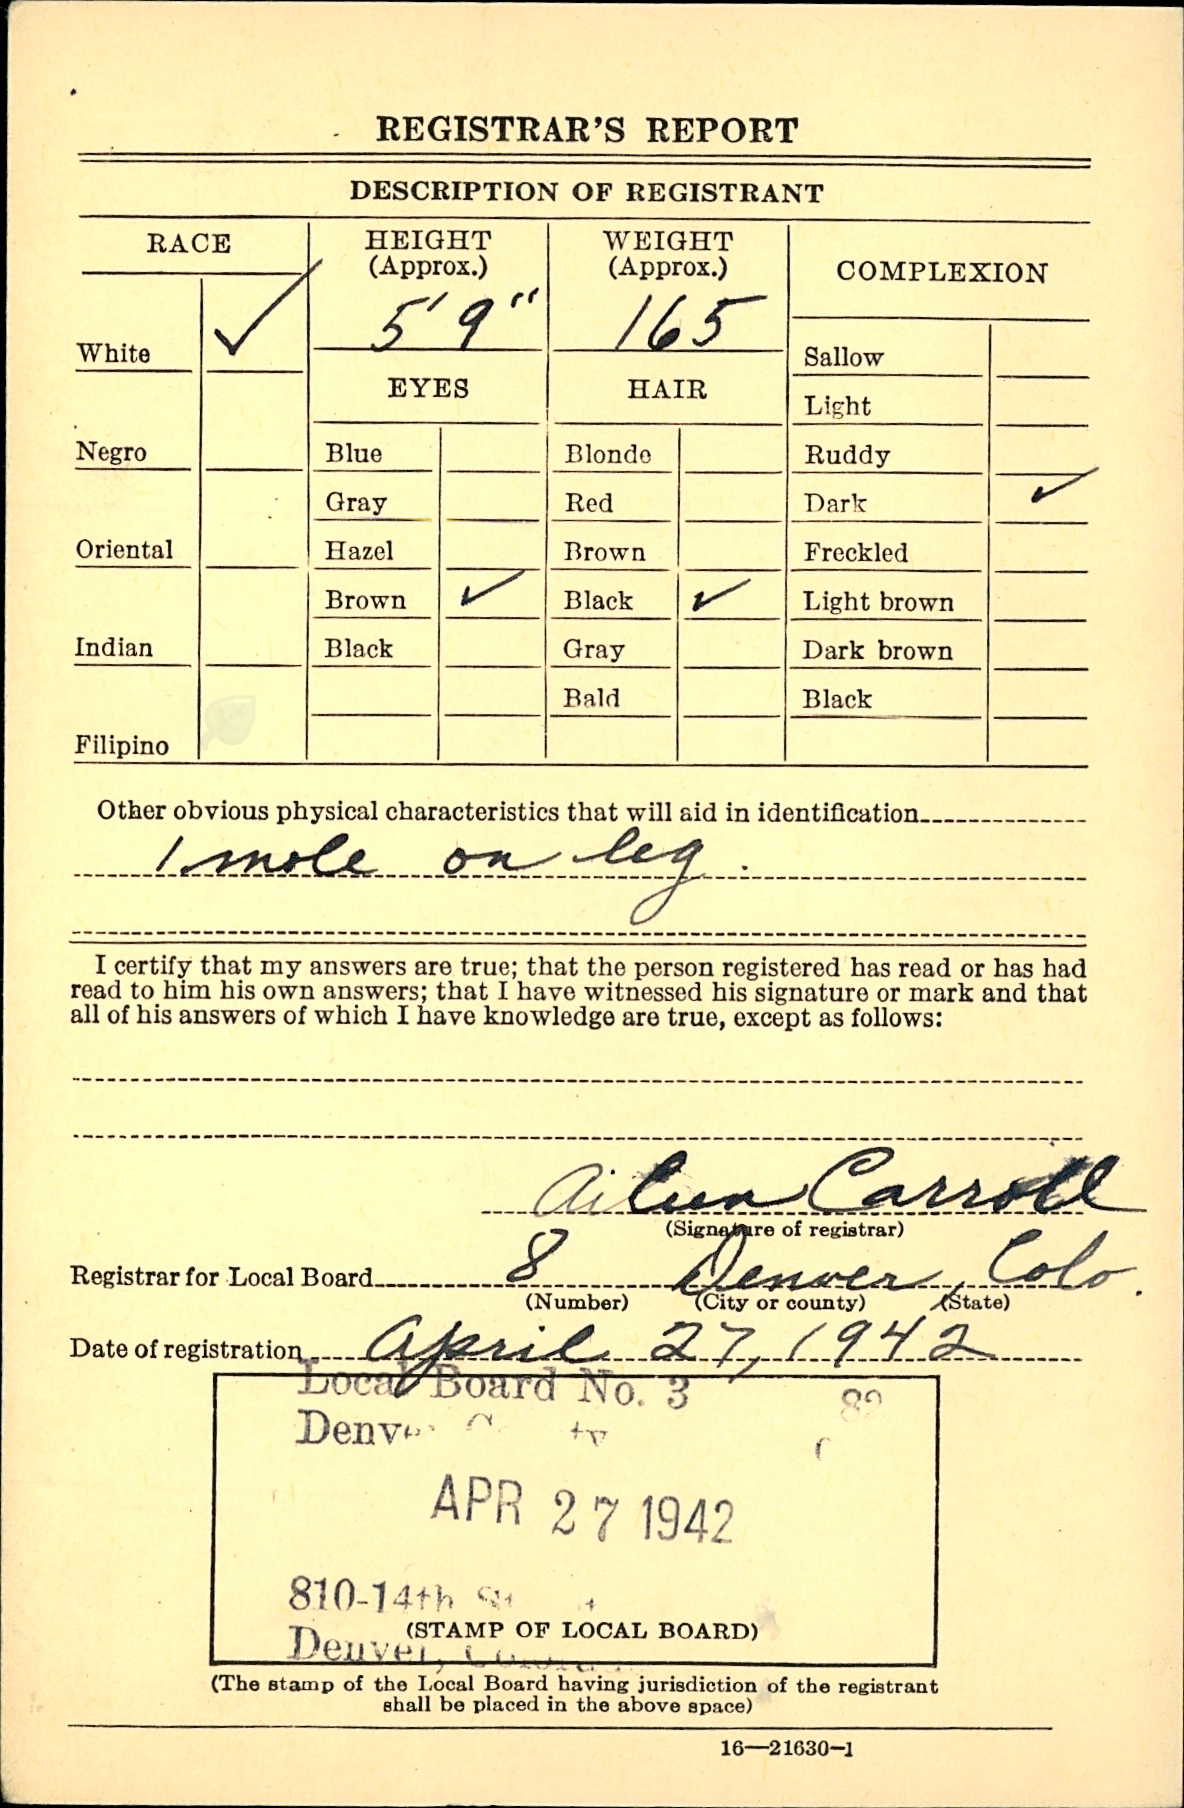 REGISTRAR'S REPORT
DESCRIPTION OF REGISTRANT
RACE
HEIGHT
(Approx.)
WEIGHT
(Approx.)
COMPLEXION
5' 9"
165
White ✓
Sallow
EYES
HAIR
Light
Negro
Blue
Blonde
Ruddy
Gray
Red
Dark ✓
Oriental
Hazel
Brown
Freckled
Brown ✓
Black ✓
Light brown
Indian
Black
Gray
Dark brown
Bald
Black
Filipino
Other obvious physical characteristics that will aid in identification
1 mole on leg.
I certify that my answers are true; that the person registered has read or has had
read to him his own answers; that I have witnessed his signature or mark and that
all of his answers of which I have knowledge are true, except as follows:
Aileen Carroll
(Signature of registrar)
Registrar for Local Board 8 Denver, Colo.
(Number) (City or county) (State)
Date of registration April 27, 1942
Local Board No. 3
Denver
APR 27 1942
810-14th
(STAMP OF LOCAL BOARD)
Denver,
(The stamp of the Local Board having jurisdiction of the registrant
shall be placed in the above space)
16—21630-1